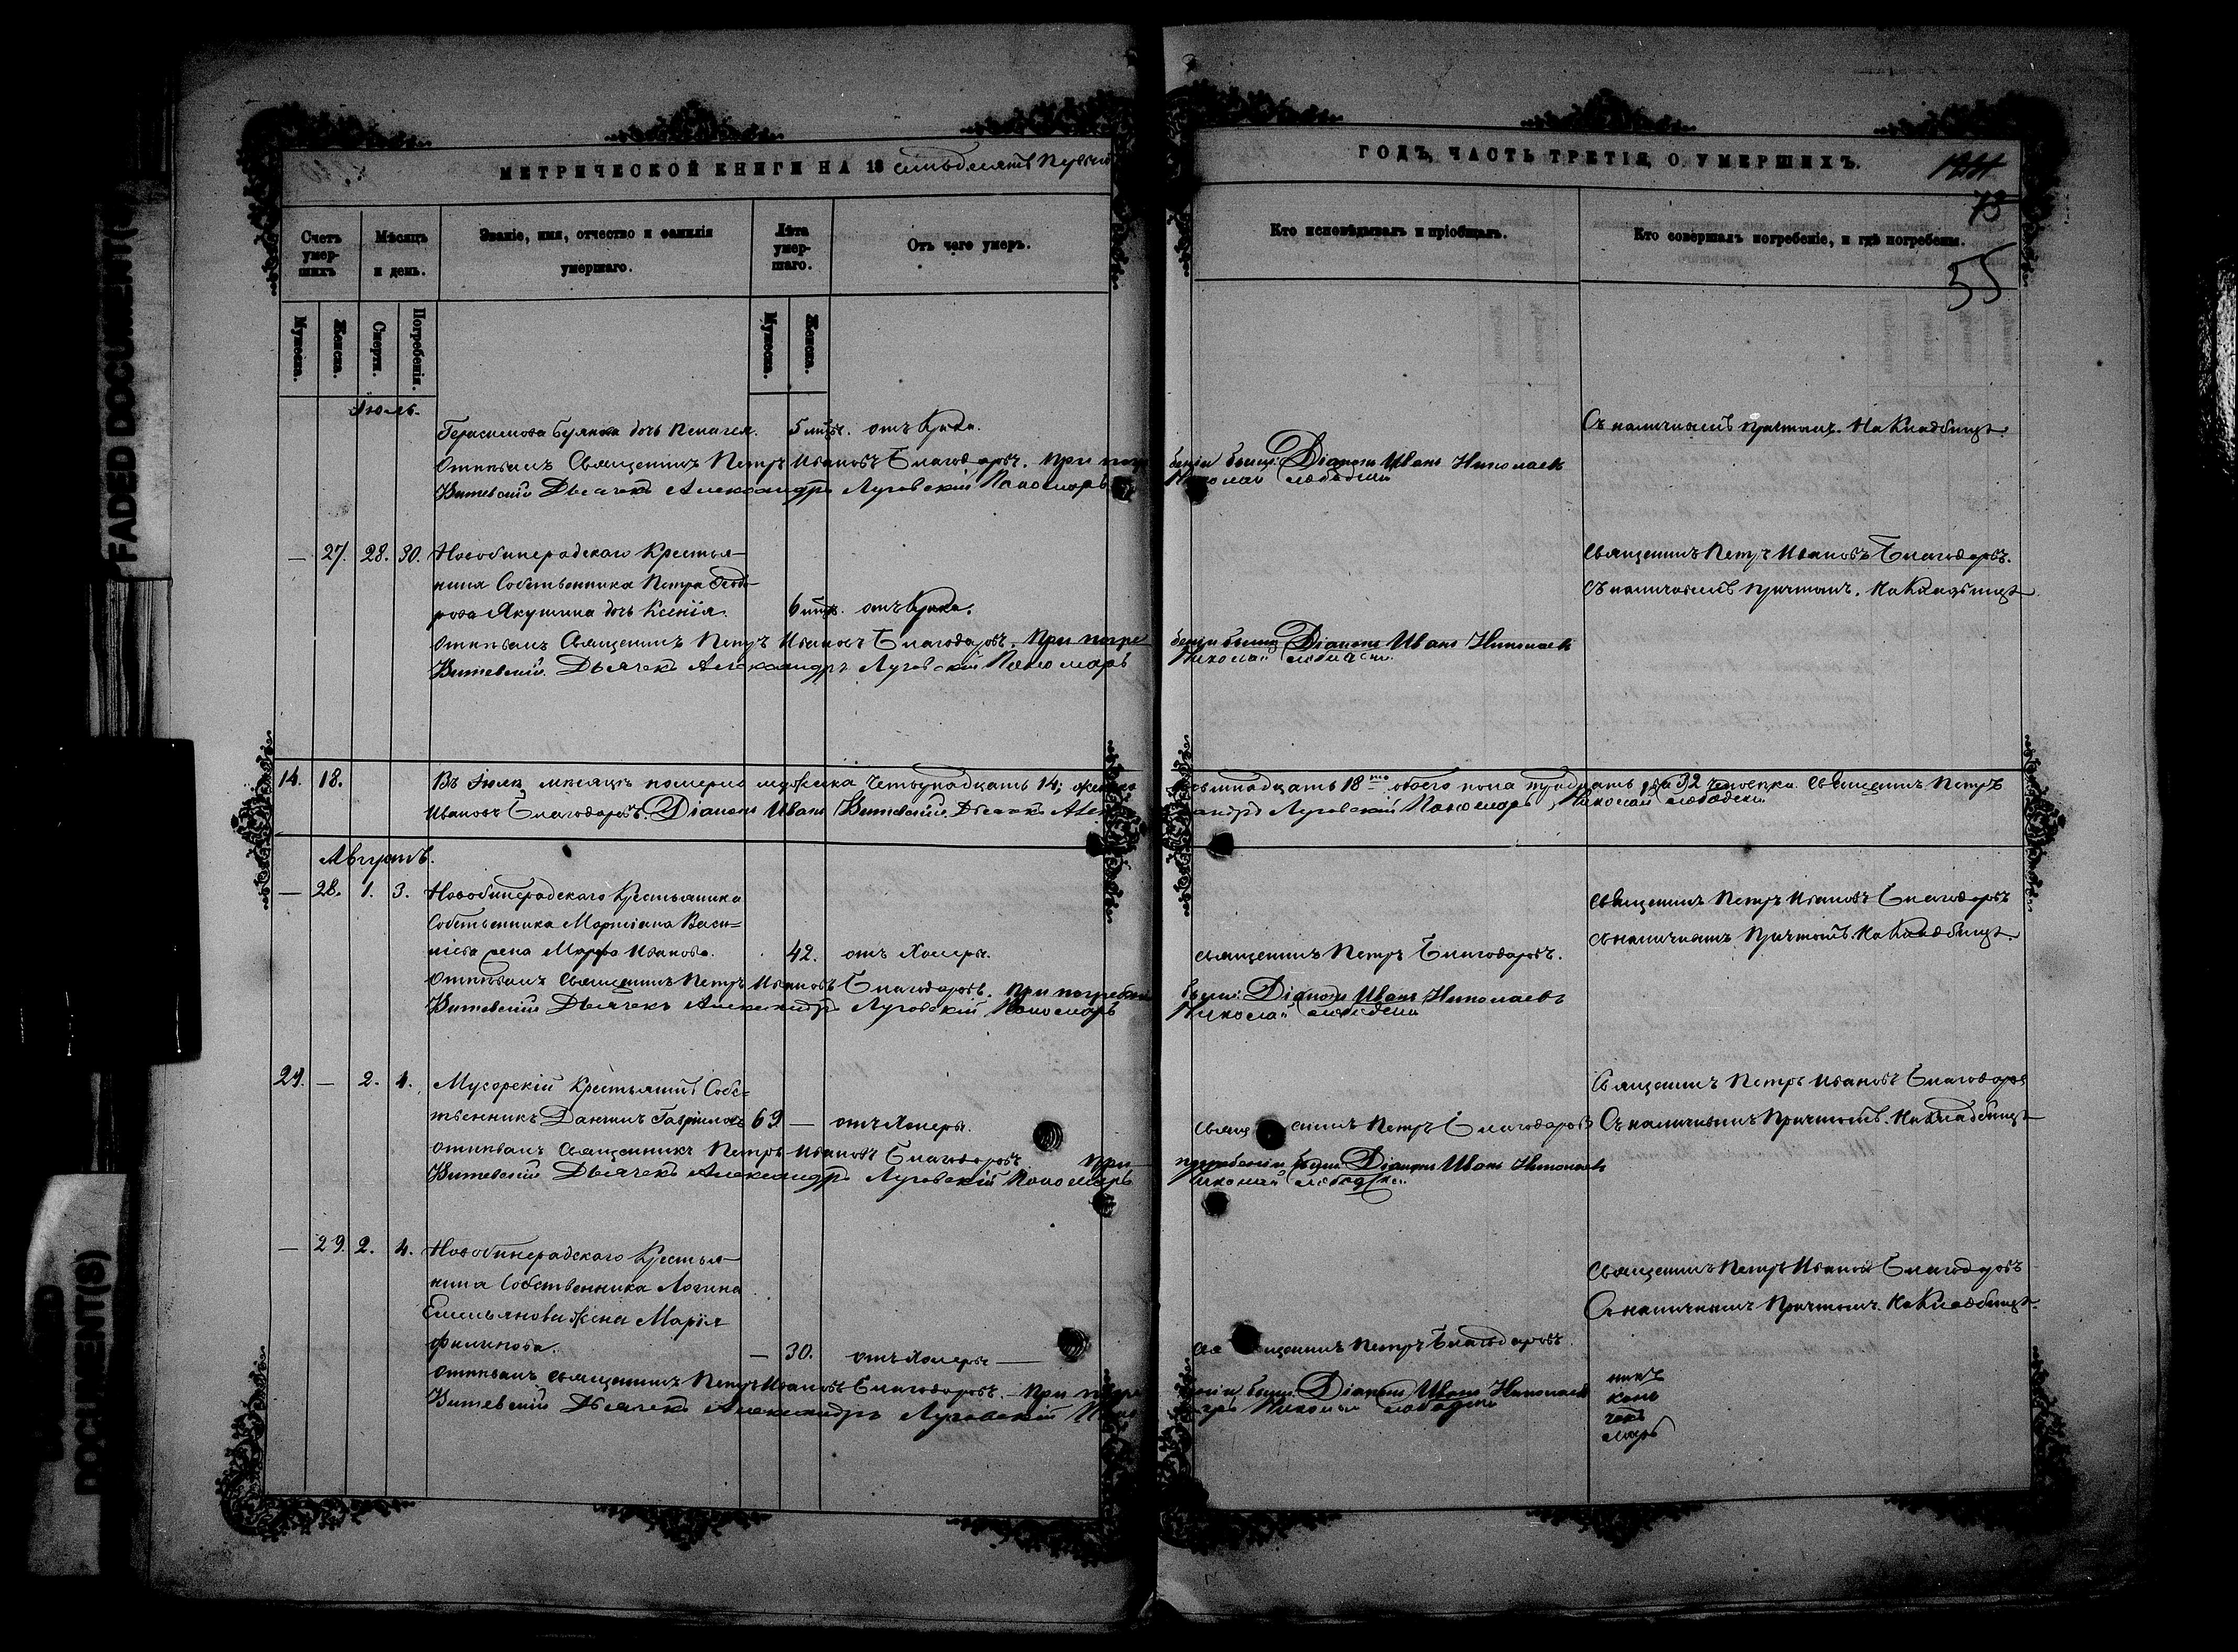 FADED DOCUMENT(S)
DOCUMENT(S)
МЕТРИЧЕСКОЙ КНИГИ НА 18 семьдесятъ первый
ГОДЪ, ЧАСТЬ ТРЕТІЯ, О УМЕРШИХЪ.
73
55
Счетъ умер-шихъ
Мѣсяцъ и день.
Званіе, имя, отчество и фамилія умершаго.
Лѣта умер-шаго.
Отъ чего умеръ.
Кто исповѣдывалъ и пріобщалъ.
Кто совершалъ погребеніе, и гдѣ погребены.
Мужеска.
Женска.
Смерти.
Погребенія.
Мужеска.
Женска.
Іюль.
Герасимова дочь Пелагея. 5 мѣс. отъ крика. Съ наличнымъ причтомъ. На Кладбищѣ.
Отпѣвалъ Священникъ Петръ Ивановъ Благодаровъ. При погре беніи были: Діаконъ Иванъ Николаевъ
Витевскій Дьячекъ Александръ Луговскій Пономарь Николай
— 27. 28. 30. Крестья-
Священникъ Петръ Ивановъ Благодаровъ.
нина Собственника Петра Ѳедо-
Съ наличнымъ причтомъ. На Кладбищѣ
рова Якушина дочь Ксенія. 6 мѣс. отъ крика.
Отпѣвалъ Священникъ Петръ Ивановъ Благодаровъ. При погре беніи были Діаконъ Иванъ Николаевъ
Витевскій. Дьячекъ Александръ Луговскій Пономарь Николай
14. 18. Въ Іюлѣ мѣсяцѣ померло мужеска четырнадцать 14; женска восемнадцать 18 обоего пола тридцать два 32 человѣка. Священникъ Петръ
Ивановъ Благодаровъ. Діаконъ Иванъ Витевскій. Дьячекъ Александръ Луговскій Пономарь Николай
Августъ.
— 28. 1. 3. Крестьянина
Священникъ Петръ Ивановъ Благодаровъ
Собственника Мартіана Васи-
съ наличнымъ Причтомъ. На Кладбищѣ.
льева жена Марфа Иванова. 42. отъ Холеры. Священникъ Петръ Благодаровъ.
Отпѣвалъ Священникъ Петръ Ивановъ Благодаровъ. При погребеніи были: Діаконъ Иванъ Николаевъ
Витевскій Дьячекъ Александръ Луговскій Пономарь Николай
29. — 2. 4. Мусорскій Крестьянинъ Собс-
Священникъ Петръ Ивановъ Благодаровъ
твенникъ Даніилъ Гавриловъ 69. — отъ Холеры. Священникъ Петръ Благодаровъ Съ наличнымъ Причтомъ. На Кладбищѣ
Отпѣвалъ Священникъ Петръ Ивановъ Благодаровъ При погребеніи были Діаконъ Иванъ Николаевъ
Витевскій Дьячекъ Александръ Луговскій Пономарь Николай
— 29. 2. 4. Крестья-
нина Собственника Логина
Священникъ Петръ Ивановъ Благодаровъ
Емельянова жена Марія
Съ наличнымъ Причтомъ. На Кладбищѣ.
Филипова. — 30. отъ Холеры — Священникъ Петръ Благодаровъ.
Отпѣвалъ Священникъ Петръ Ивановъ Благодаровъ. При погребеніи были Діаконъ Иванъ Николаевъ
Витевскій Дьячекъ Александръ Луговскій Пономарь Николай
никъ
конъ
чекъ
марь